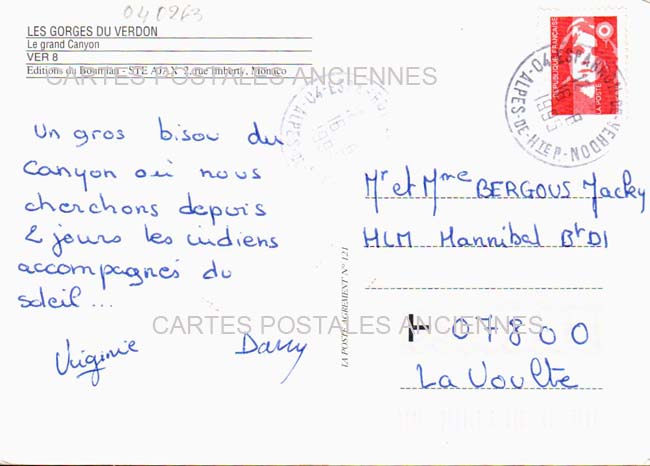 040263
LES GORGES DU VERDON
Le grand Canyon
VER 8
Editions du Boumian - STE AJAX 2, rue Imberty, Monaco
CARTES POSTALES ANCIENNES
Un gros bisou du
Canyon où nous
cherchons depuis
2 jours les indiens
accompagnés du
soleil...
Virginie Dany
LA POSTE AGREMENT N° 121
REPUBLIQUE FRANÇAISE
LA POSTE
04
VERDON
ALPES-DE-HTE P.
1993
Mr et Mme BERGOUS Jacky
HLM Hannibal Bt D1
07800
La Voulte
CARTES POSTALES ANCIENNES